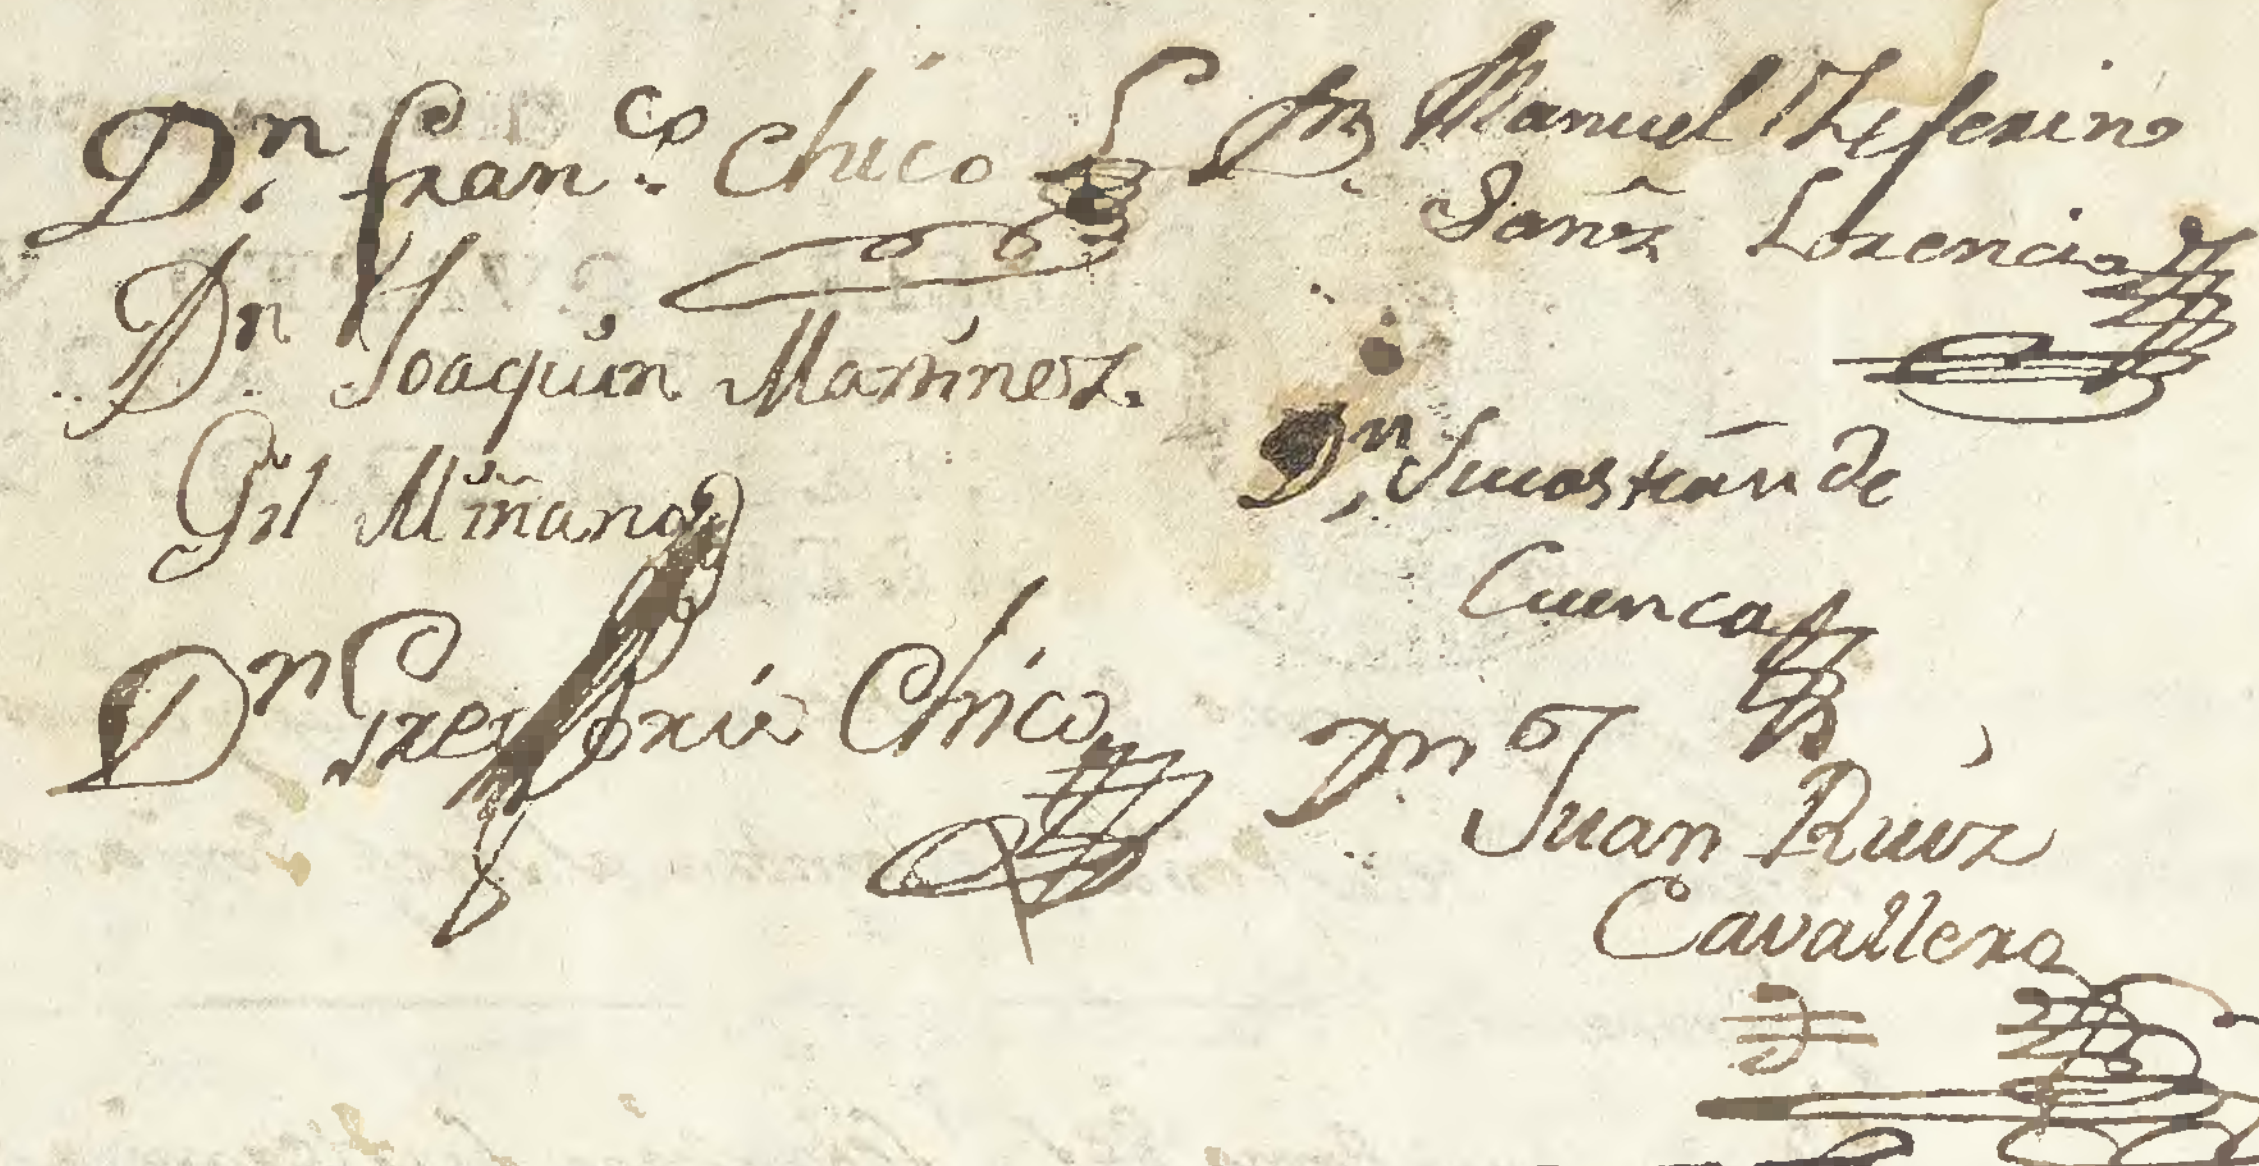 Dn. Franco. Chico
Dn. Joaquin Martinez
Gil Miñano
Dn Gregorio Chico
Dn. Manuel Zeferino
Sanz Lorencio
Dn. de
Cuenca
Dn. Juan Ruiz
Cavallero